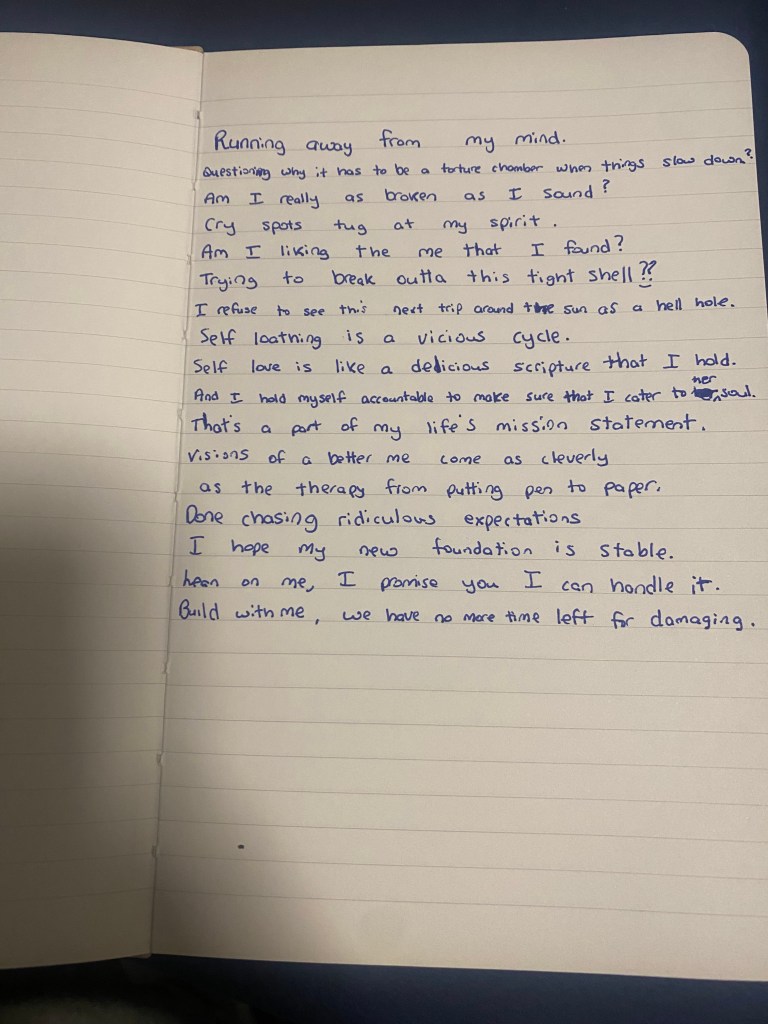 Running away from my mind.
Questioning why it has to be a torture chamber when things slow down?
Am I really as broken as I sound?
Cry spots tug at my spirit.
Am I liking the me that I found?
Trying to break outta this tight shell??
I refuse to see this next trip around the sun as a hell hole.
Self loathing is a vicious cycle.
Self love is like a delicious scripture that I hold.
And I hold myself accountable to make sure that I cater to her soul.
That's a part of my life's mission statement.
Visions of a better me come as cleverly
as the therapy from putting pen to paper.
Done chasing ridiculous expectations
I hope my new foundation is stable.
Lean on me, I promise you I can handle it.
Build with me, we have no more time left for damaging.